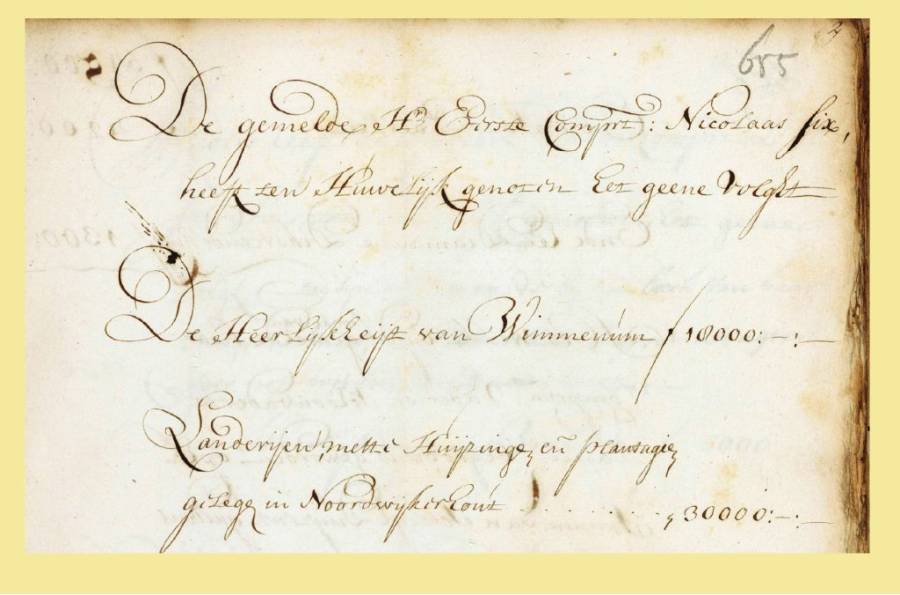 655
De gemelde Hr. Eerste Comprt: Nicolaas Six,
heeft ten Huwelijk genoten het geene volght
De Heerlijkheijt van Wimmenum ƒ 18000:-:-
Landerijen, mette Huijzinge, en plantagie,
gelege in Noordwijkerhout .......... „ 30000:-:-